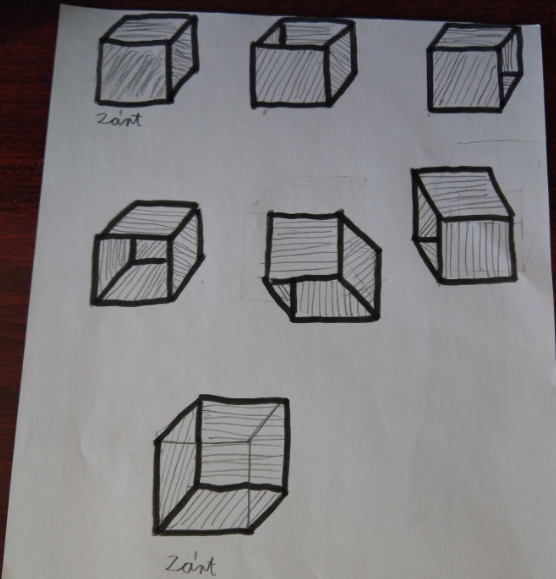 Zárt
Zárt